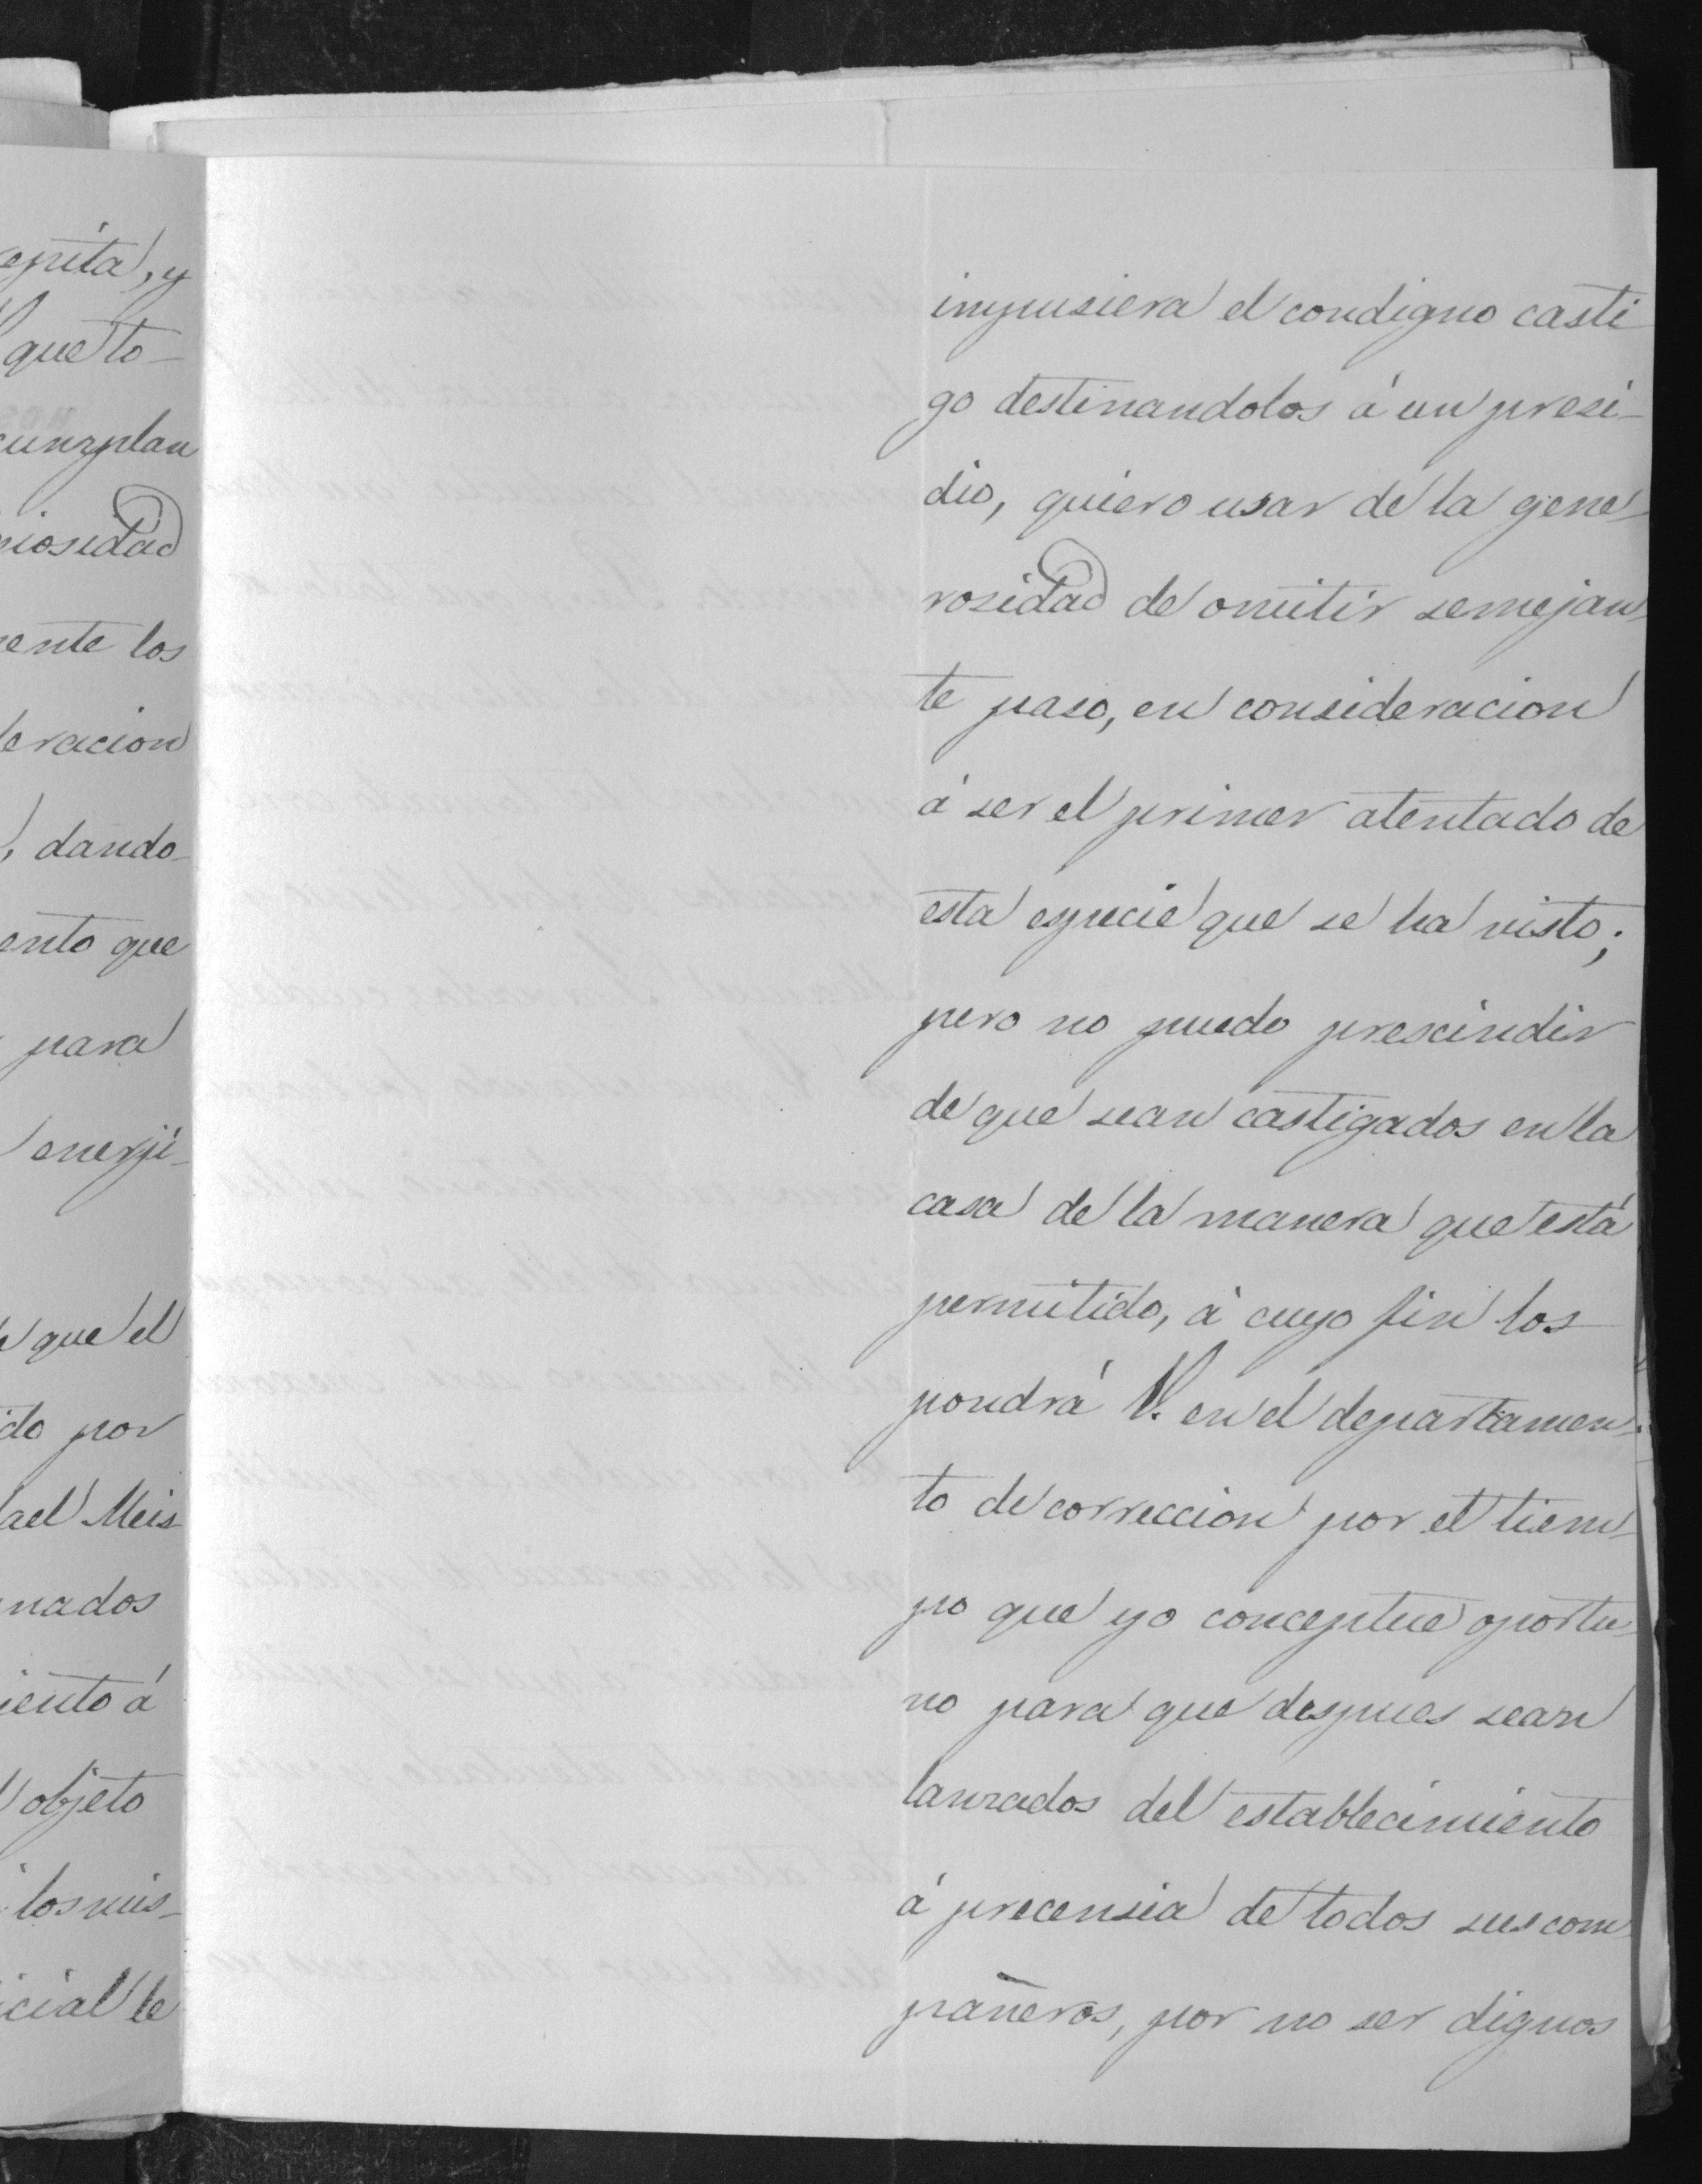 epita, y
que to-
cumplan
niosidad
ente los
eracion
, dando-
ento que
para
enerji-
que el
do por
ael Meis
nados
iento á
objeto
los mis-
icial le
impusiera el condigno casti
go destinandolos á un presi-
dio, quiero usar de la gene-
rosidad de omitir semejan-
te paso, en consideracion
á ser el primer atentado de
esta especie que se ha visto;
pero no puedo prescindir
de que sean castigados en la
casa de la manera que está
permitido, á cuyo fin los
pondrá V. en el departamen-
to de correccion por el tiem-
po que yo conceptue oportu-
no para que despues sean
lanzados del establecimiento
á precensia de todos sus com
pañeros, por no ser dignos